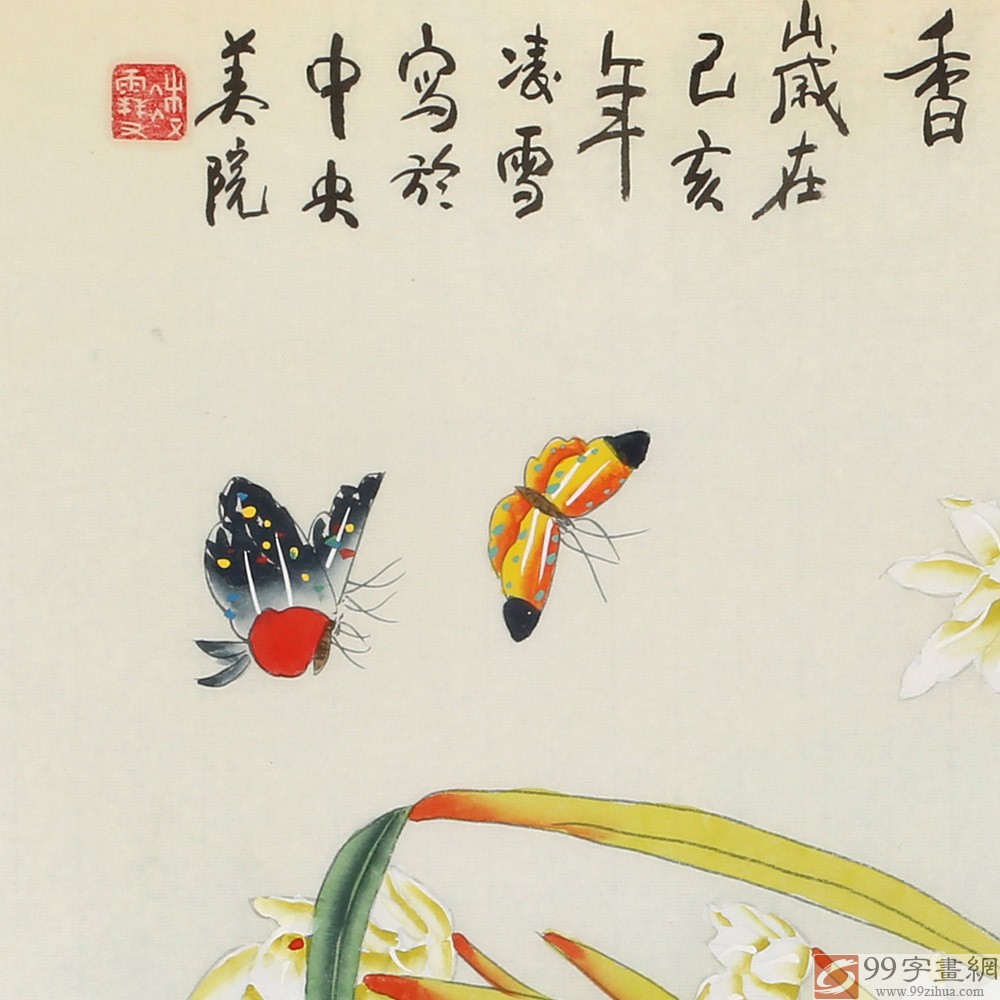 香
歲在
己亥
年
凌雪
寫於
中央
美院
99字畫網
www.99zihua.com